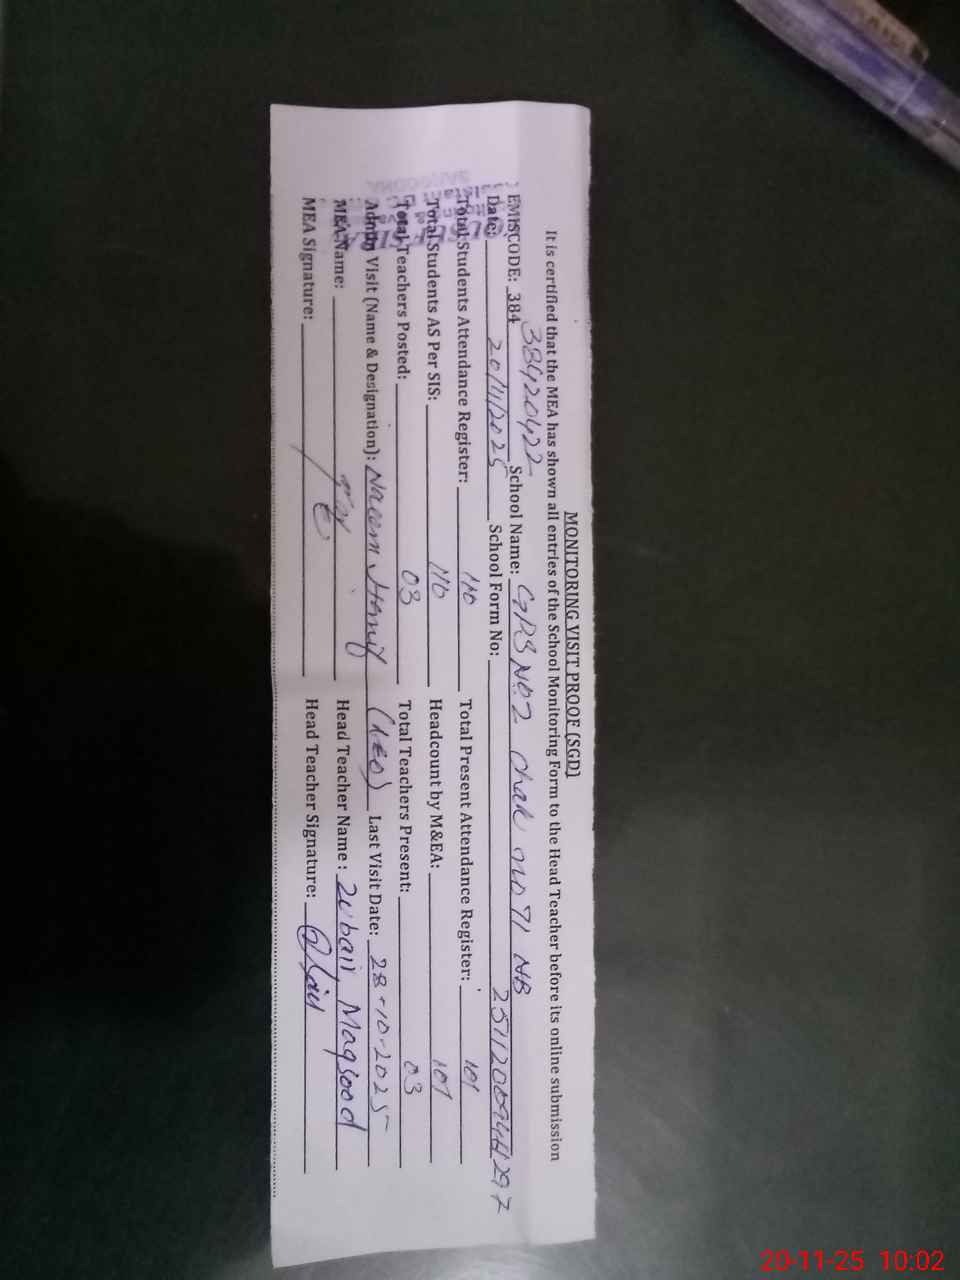 MONITORING VISIT PROOF (SGD)
It is certified that the MEA has shown all entries of the School Monitoring Form to the Head Teacher before its online submission
EMISCODE: 384 38420422 School Name: GPS No.2 Chak no 71 NB
Date: 20/11/2025 School Form No:
Total Students Attendance Register: 110 Total Present Attendance Register: 101
Total Students AS Per SIS: 110 Headcount by M&EA: 101
Total Teachers Posted: 03 Total Teachers Present: 03
Admin Visit (Name & Designation): Naeem Hanif (AEO) Last Visit Date: 28-10-2025
MEA Name: Head Teacher Name : Zubair Maqsood
MEA Signature: Head Teacher Signature:
20-11-25 10:02